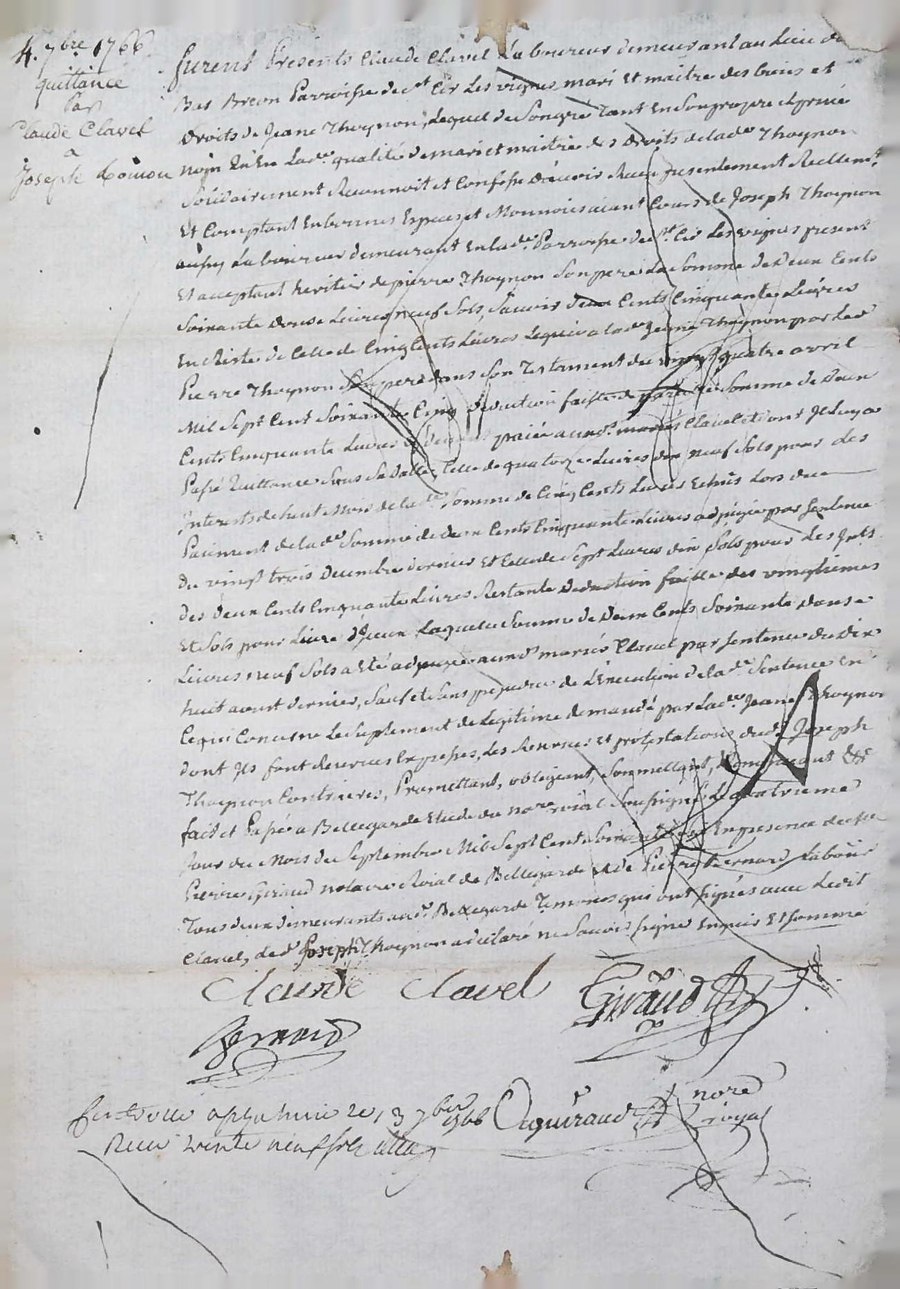 4. 7bre 1766
quittance
par
Claude Clavel
a
Joseph
furent Presents Claude Clavel Laboureur demeurant au Lieu de
Bas Breon Parroisse de st Cir Les vignes mari Et maitre des biens et
Droits de Jeane Thoynon, Lequel de Son gre Tant En Son propre et privé
nom qu'En Lade qualité de mari et maitre des Droits de lade Thoynon
Solidairement Reconnoit et Confesse D'avoir Receu presentement Reellemt
Et Comptant En bonnes Especes et Monnoies aiant Cours de Joseph Thoynon
aussy Laboureur demeurant En lade Parroisse de st Cir Les vignes present
Et acceptant heritier de pierre Thoynon Son pere La Somme de Deux Cents
Soixante douse Livres neuf Sols, Sauoir deux Cents Cinquante Livres
En Reste de Celle de Cinq Cents Livres Leguée a lade Jeane Thoynon par Led
Pierre Thoynon Son pere dans Son Testament du vingt quatre avril
Mil Sept Cent Soixante Cinq deduction faitte de pareille Somme de Deux
Cents Cinquante Livres paiée auxds mariés Clavel et dont Il Luy a
Passé Quittance Sous Sa Datte, Celle de quatorze Livres dix neuf Sols pour des
Interests de lade Somme de Cinq Cents Livres Echus Lors du
Paiement de lade Somme de deux Cents Cinquante Livres adjugée par Sentence
Du vingt trois Decembre dernier Et Celle de Sept Livres dix Sols pour Les Ints
des deux Cents Cinquante Livres Restante deduction faitte des vingtiemes
Et Sols pour Livre d'Iceux Laquelle Somme de Deux Cents Soixante douse
Livres neuf Sols a Eté adjugée auxds mariés Clavel par Sentence du Dix
huit aoust dernier, Sauf et Sans prejudice de L'Execution de lade Sentence En
Ce qui Concerne Le Suplement de Legitime demandé par Lade Jeane Thoynon
dont Ils font Reserves Expresses, Les Reserves Et protestations dud Joseph
Thoynon Contrieres, Promettant, obligeant, Soumettant, Renonçant &&
fait et Passé a Bellegarde Etude du nore roial Soussigné Le quatrieme
Jour du Mois de Septembre Mil Sept Cent Soixante Six En presence de
Pierre Giraud notaire Roial de Bellegarde et de Pierre Bernard Labour
Tous deux demeurants aud Bellegarde Temoins qui ont Signés avec Ledit
Clavel, Led Joseph Thoynon a déclaré ne Sauoir Signe Enquis Et Sommé
Claude Clavel Giraud
Bernard
Controlle a le 13 7bre 1766 guiraud nore
Receu trente neuf sols royal